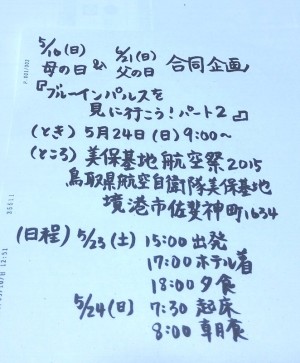 5/10(日) 6/21(日)
母の日 & 父の日 合同企画
『ブルーインパルスを
見に行こう!パート2』
(とき) 5月24日(日)9:00~
(ところ) 美保基地航空祭2015
鳥取県航空自衛隊美保基地
境港市佐斐神町1634
(日程) 5/23(土) 15:00 出発
17:00 ホテル着
18:00 夕食
5/24(日) 7:30 起床
8:00 朝食